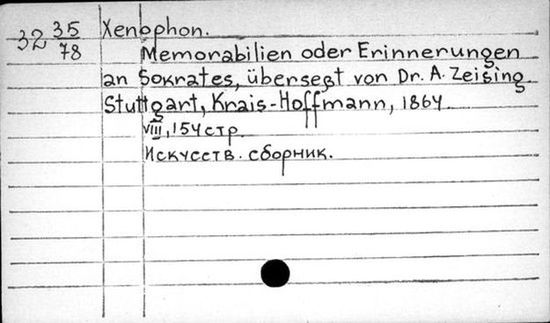 32 35/78 Xenophon.
Memorabilien oder Erinnerungen
an Sokrates, übersetzt von Dr. A. Zeising.
Stuttgart, Krais-Hoffmann, 1864.
VIII, 154 стр.
Искусств. сборник.